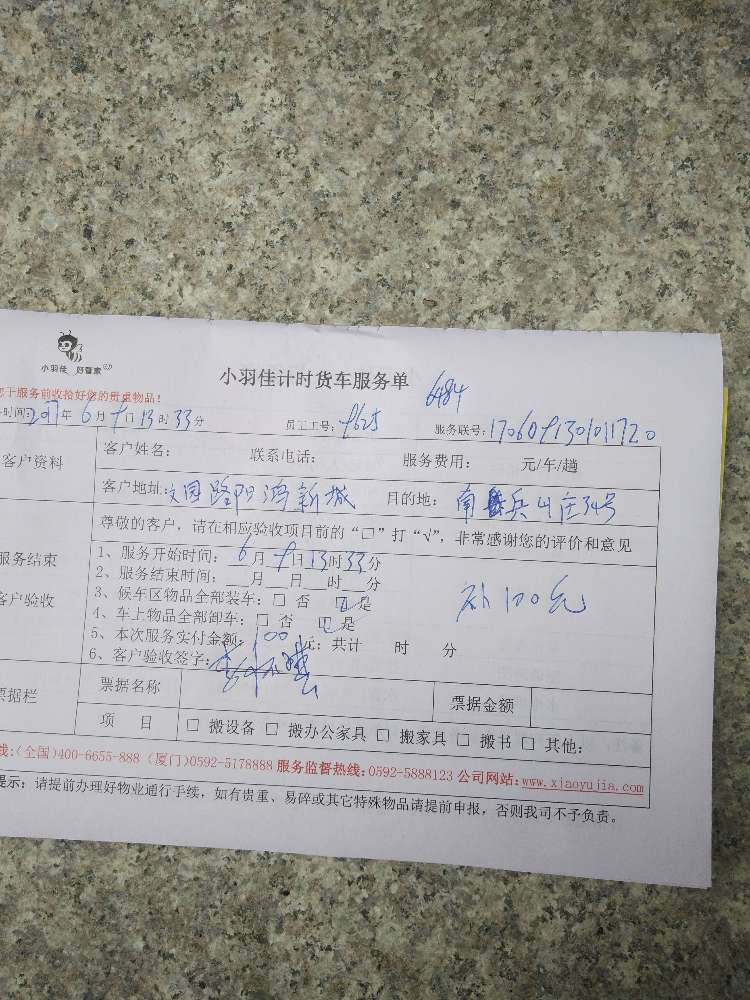 小羽佳 好管家
小羽佳计时货车服务单 6484
您于服务前收拾好您的贵重物品！
时间：2017年6月9日13时33分 员工工号：9625 服务联号：1706091301011720
客户资料 客户姓名： 联系电话： 服务费用： 元/车/趟
客户地址：文园路阳鸿新城 目的地：南 兵山庄34号
尊敬的客户，请在相应验收项目前的“□”打“√”，非常感谢您的评价和意见
服务结束
客户验收
1、服务开始时间：6月9日13时33分
2、服务结束时间：__月__日__时__分
3、候车区物品全部装车：□ 否 ☑是
4、车上物品全部卸车：□ 否 ☑是
5、本次服务实付金额：100元；共计 时 分
6、客户验收签字：
补100元
票据栏 票据名称 票据金额
项 目 □ 搬设备 □ 搬办公家具 □ 搬家具 □ 搬书 □ 其他：
线：（全国）400-6655-888（厦门）0592-5178888 服务监督热线：0592-5888123 公司网站：www.xiaoyujia.com
提示：请提前办理好物业通行手续，如有贵重、易碎或其它特殊物品请提前申报，否则我司不予负责。